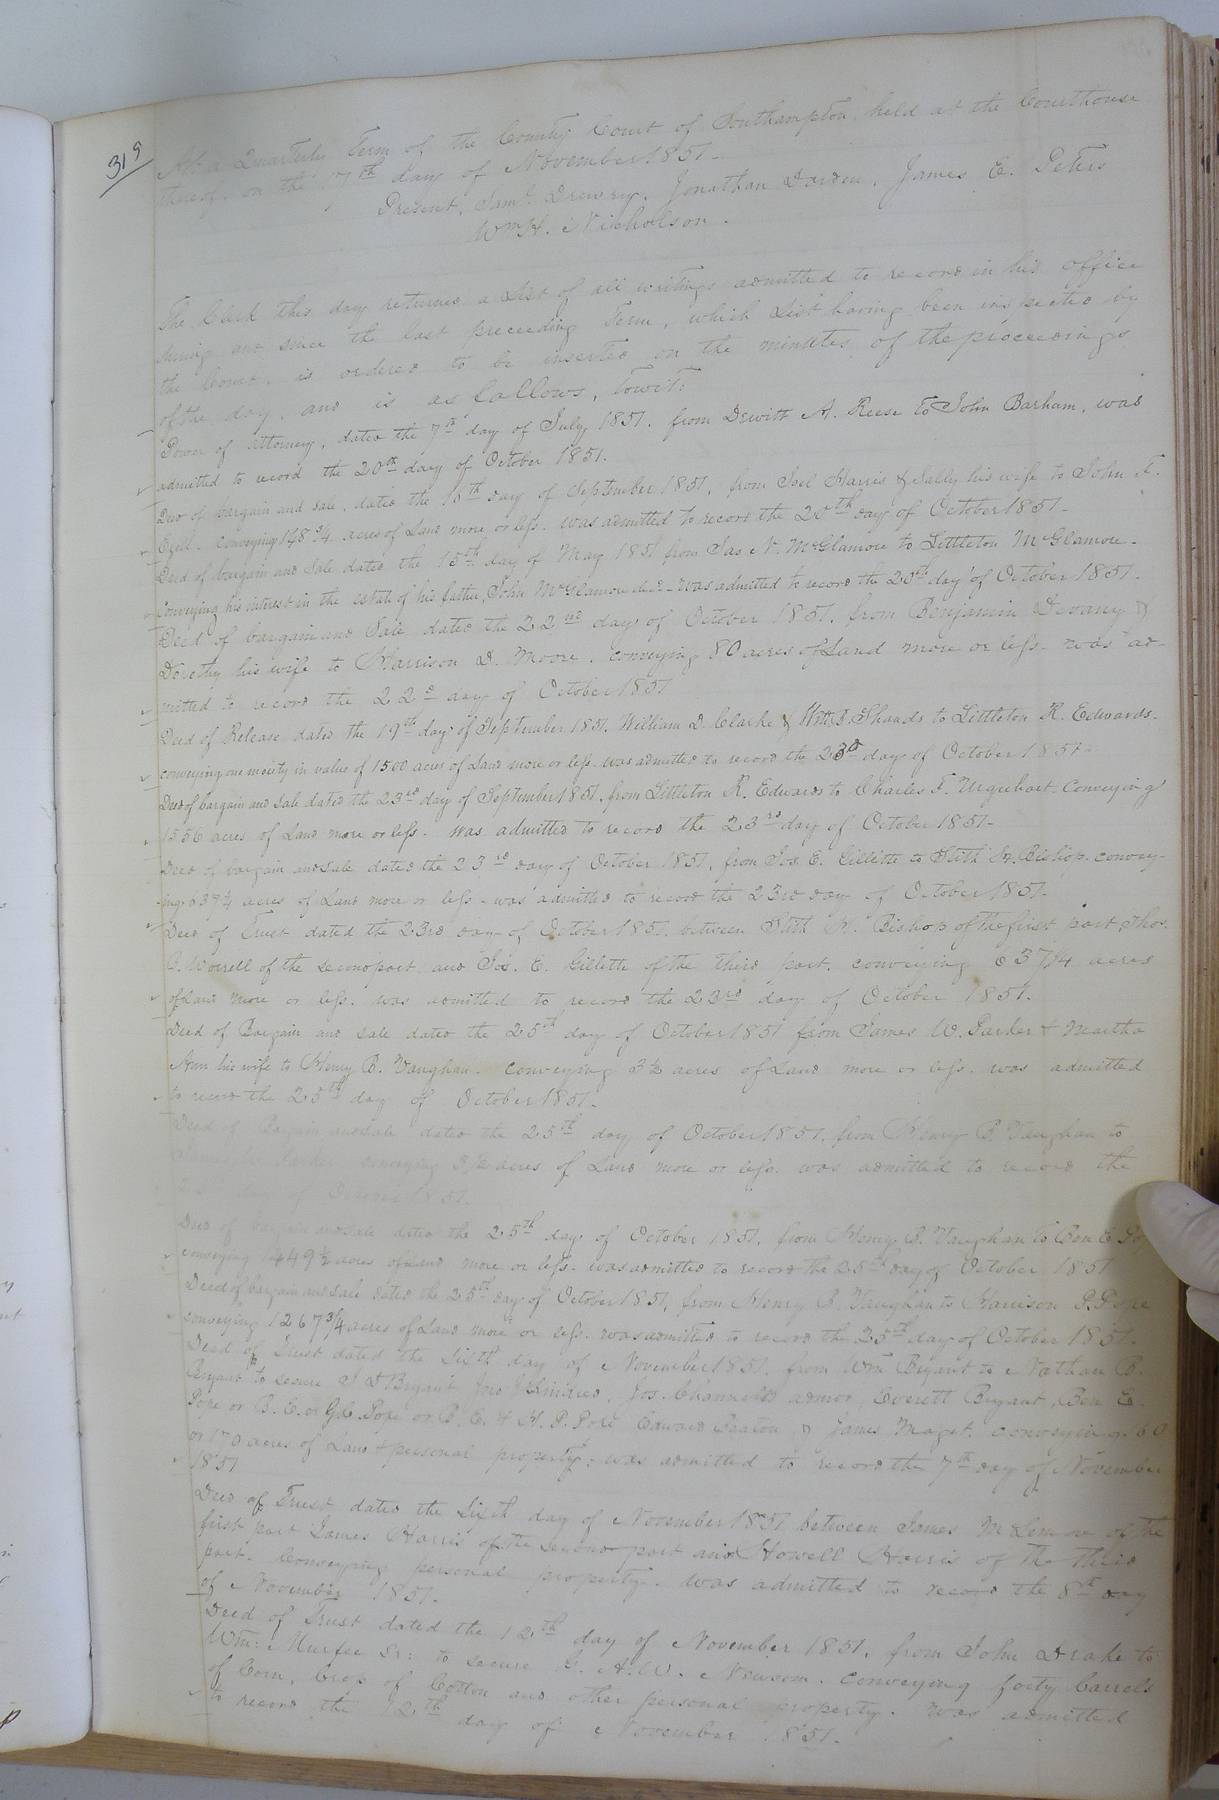 319
At a Quarterly Term of the County Court of Southampton, held at the Courthouse
thereof, on the 17th day of November 1851.
Present, Saml. Drewry, Jonathan Darden, James E. Peters
Wm H. Nicholson.
The Clerk this day returned a List of all writings admitted to record in his office
during and since the last preceeding Term, which List having been inspected by
the Court, is ordered to be inserted on the minutes of the proceedings
of the day, and is as follows, towit:
Power of attorney, dated the 7th day of July 1851. from Dewitt A. Reese to John Barham, was
admitted to record the 20th day of October 1851.
Deed of bargain and sale, dated the 10th day of September 1851, from Joel Harris & Sally his wife to John F.
Ezell. Conveying 148 3/4 acres of Land more or less. was admitted to record the 20th day of October 1851.
Deed of bargain and sale dated the 15th day of May 1851 from Jas N. McGlamore to Littleton McGlamore.
Conveying his interest in the estate of his father, John McGlamore decd - was admitted to record the 20th day of October 1851.
Deed of bargain and Sale dated the 22nd day of October 1851. from Benjamin Devany &
Dorothy his wife to Harrison D. Moore. conveying 80 acres of Land more or less. was ad-
mitted to record the 22d day of October 1851
Deed of Release dated the 19th day of September 1851. William D. Clarke & Shands to Littleton R. Edwards.
conveying one moiety in value of 1500 acres of Land more or less. was admitted to record the 23d day of October 1851.
Deed of bargain and sale dated the 23rd day of September 1851, from Littleton R. Edwards to Charles F. Urquhart Conveying
1556 acres of Land more or less. was admitted to record the 23rd day of October 1851.
Deed of bargain and sale dated the 23rd day of October 1851, from Jos. E. Gillette to Stith Bishop. convey-
ing 637 1/4 acres of Land more or less - was admitted to record the 23rd day of October 1851.
Deed of Trust dated the 23rd day of October 1851. between Stith Bishop of the first part Thos.
Worrell of the second part and Jos. E. Gillette of the third part. conveying 637 1/4 acres
of Land more or less. was admitted to record the 23rd day of October 1851.
Deed of Bargain and sale dated the 25th day of October 1851 from James W. Parker & Martha
Ann his wife to Henry B. Vaughan. Conveying 3 1/2 acres of Land more or less. was admitted
to record the 25th day of October 1851.
Deed of Bargain and sale dated the 25th day of October 1851. from Henry B. Vaughan to
James W. Parker conveying 3 1/2 acres of Land more or less. was admitted to record the
day of October 1851.
Deed of bargain and sale dated the 25th day of October 1851. from Henry B. Vaughan to Ben E.
conveying 1449 1/2 acres of Land more or less. was admitted to record the 25th day of October 1851
Deed of bargain and sale dated the 25th day of October 1851, from Henry B. Vaughan to Harrison P. Pope
conveying 1267 3/4 acres of Land more or less. was admitted to record the 25th day of October 1851.
Deed of Trust dated the Sixth day of November 1851. from Wm Bryant to Nathan B.
Bryant to secure J. D Bryant, Jos. admor, Everett Bryant, Ben E.
Pope or B. E. or G. Pope or B. E. & H. P. Pope Edward Beaton & James Maget. conveying 60
or 170 acres of Land & personal property; was admitted to record the 7th day of November
1851
Deed of Trust dated the Sixth day of November 1851 between James McLemore of the
first part James Harris of the second part and Howell Harris of the third
part. Conveying personal property. was admitted to record the 8th day
of November 1851.
Deed of Trust dated the 12th day of November 1851, from John Drake to
Wm: Murfee Sr: to secure G. A. W. Newsom. conveying forty barrels
of Corn, Crop of Cotton and other personal property. was admitted
to record the 12th day of November 1851.